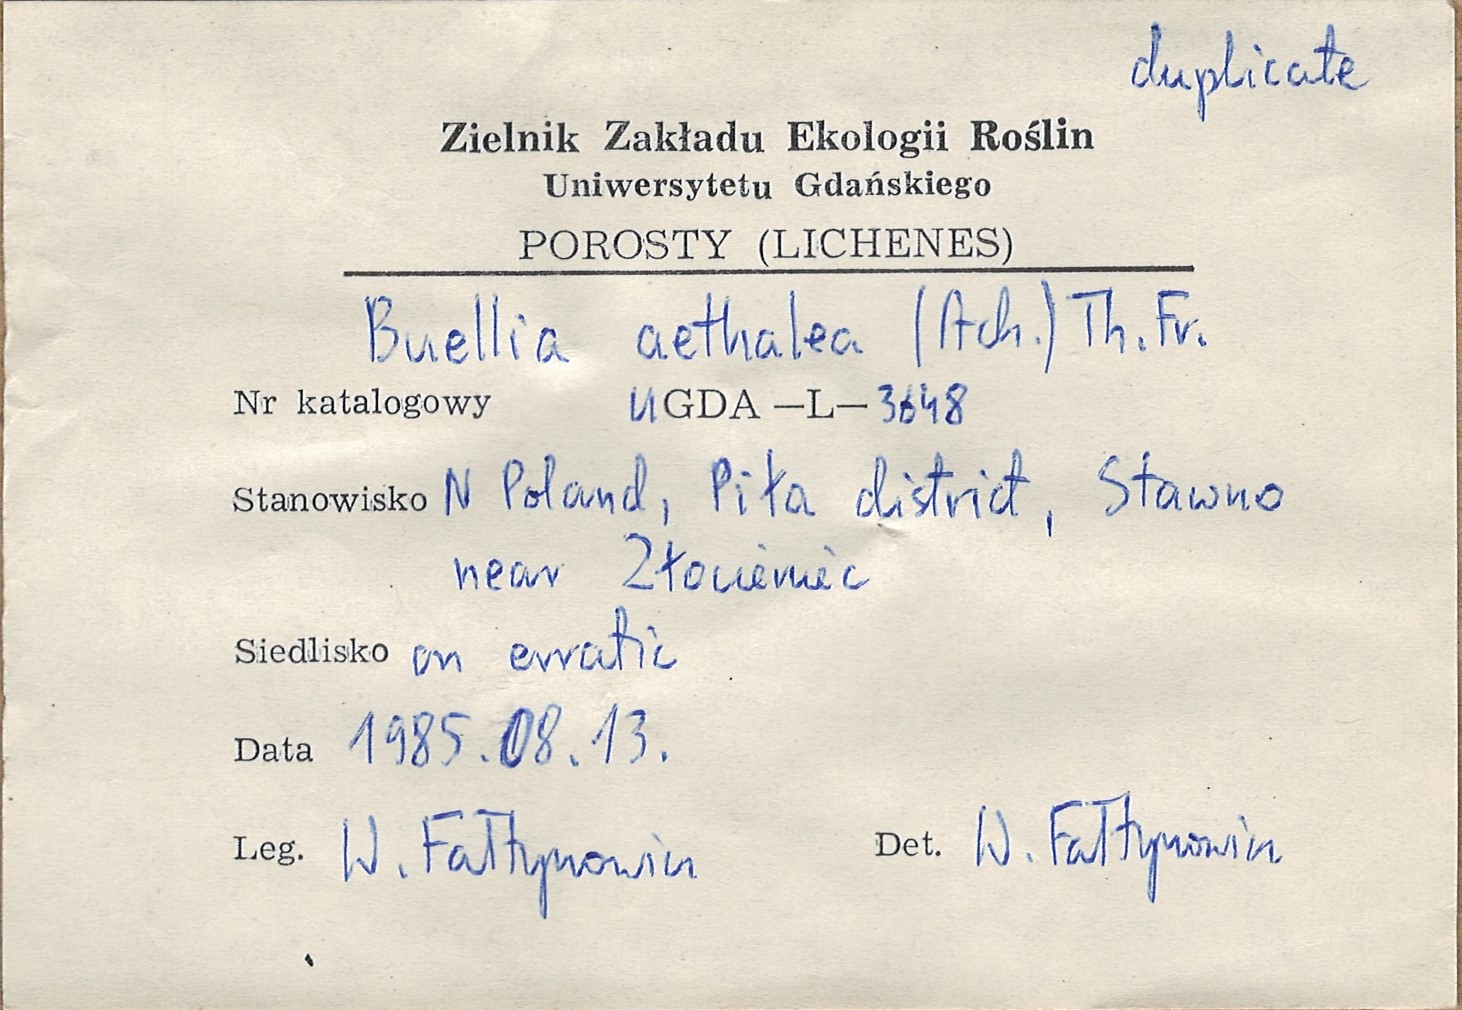 duplicate
Zielnik Zakładu Ekologii Roślin
Uniwersytetu Gdańskiego
POROSTY (LICHENES)
Buellia aethalea (Ach.) Th. Fr.
Nr katalogowy UGDA —L— 3648
Stanowisko N Poland, Piła district, Stawno
near Złocieniec
Siedlisko on erratic
Data 1985.08.13.
Leg. W. Fałtynowicz Det. W. Fałtynowicz